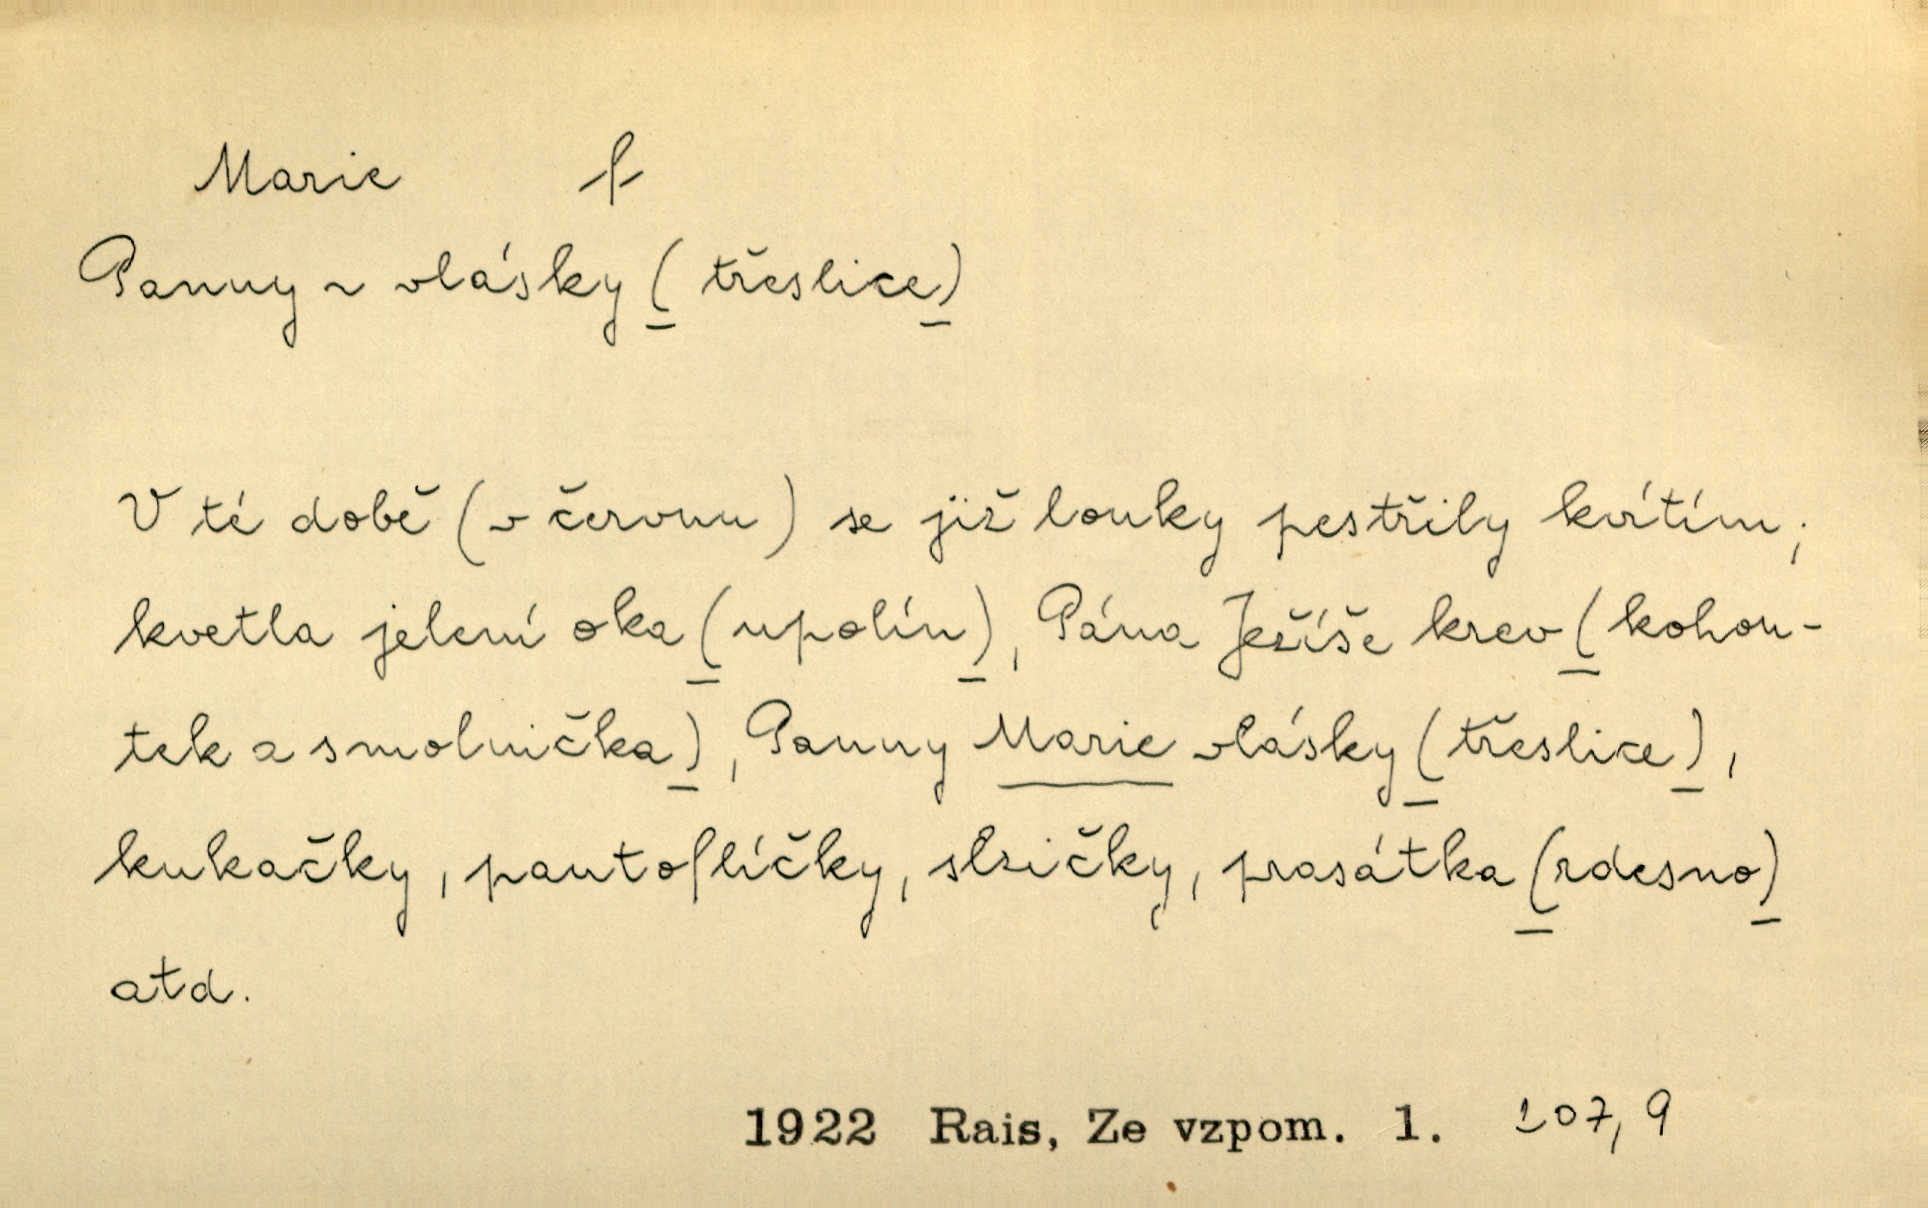 Marie f
Panny ~ vlásky ( třeslice)
V té době (v červnu) se již louky pestřily kvítím;
kvetla jelení oka (upolín), Pána Ježíše krev (kohou-
tek a smolnička), Panny Marie vlásky (třeslice),
kukačky, pantoflíčky, slzičky, prasátka (rdesno)
atd.
1922 Rais, Ze vzpom. 1. 107, 9